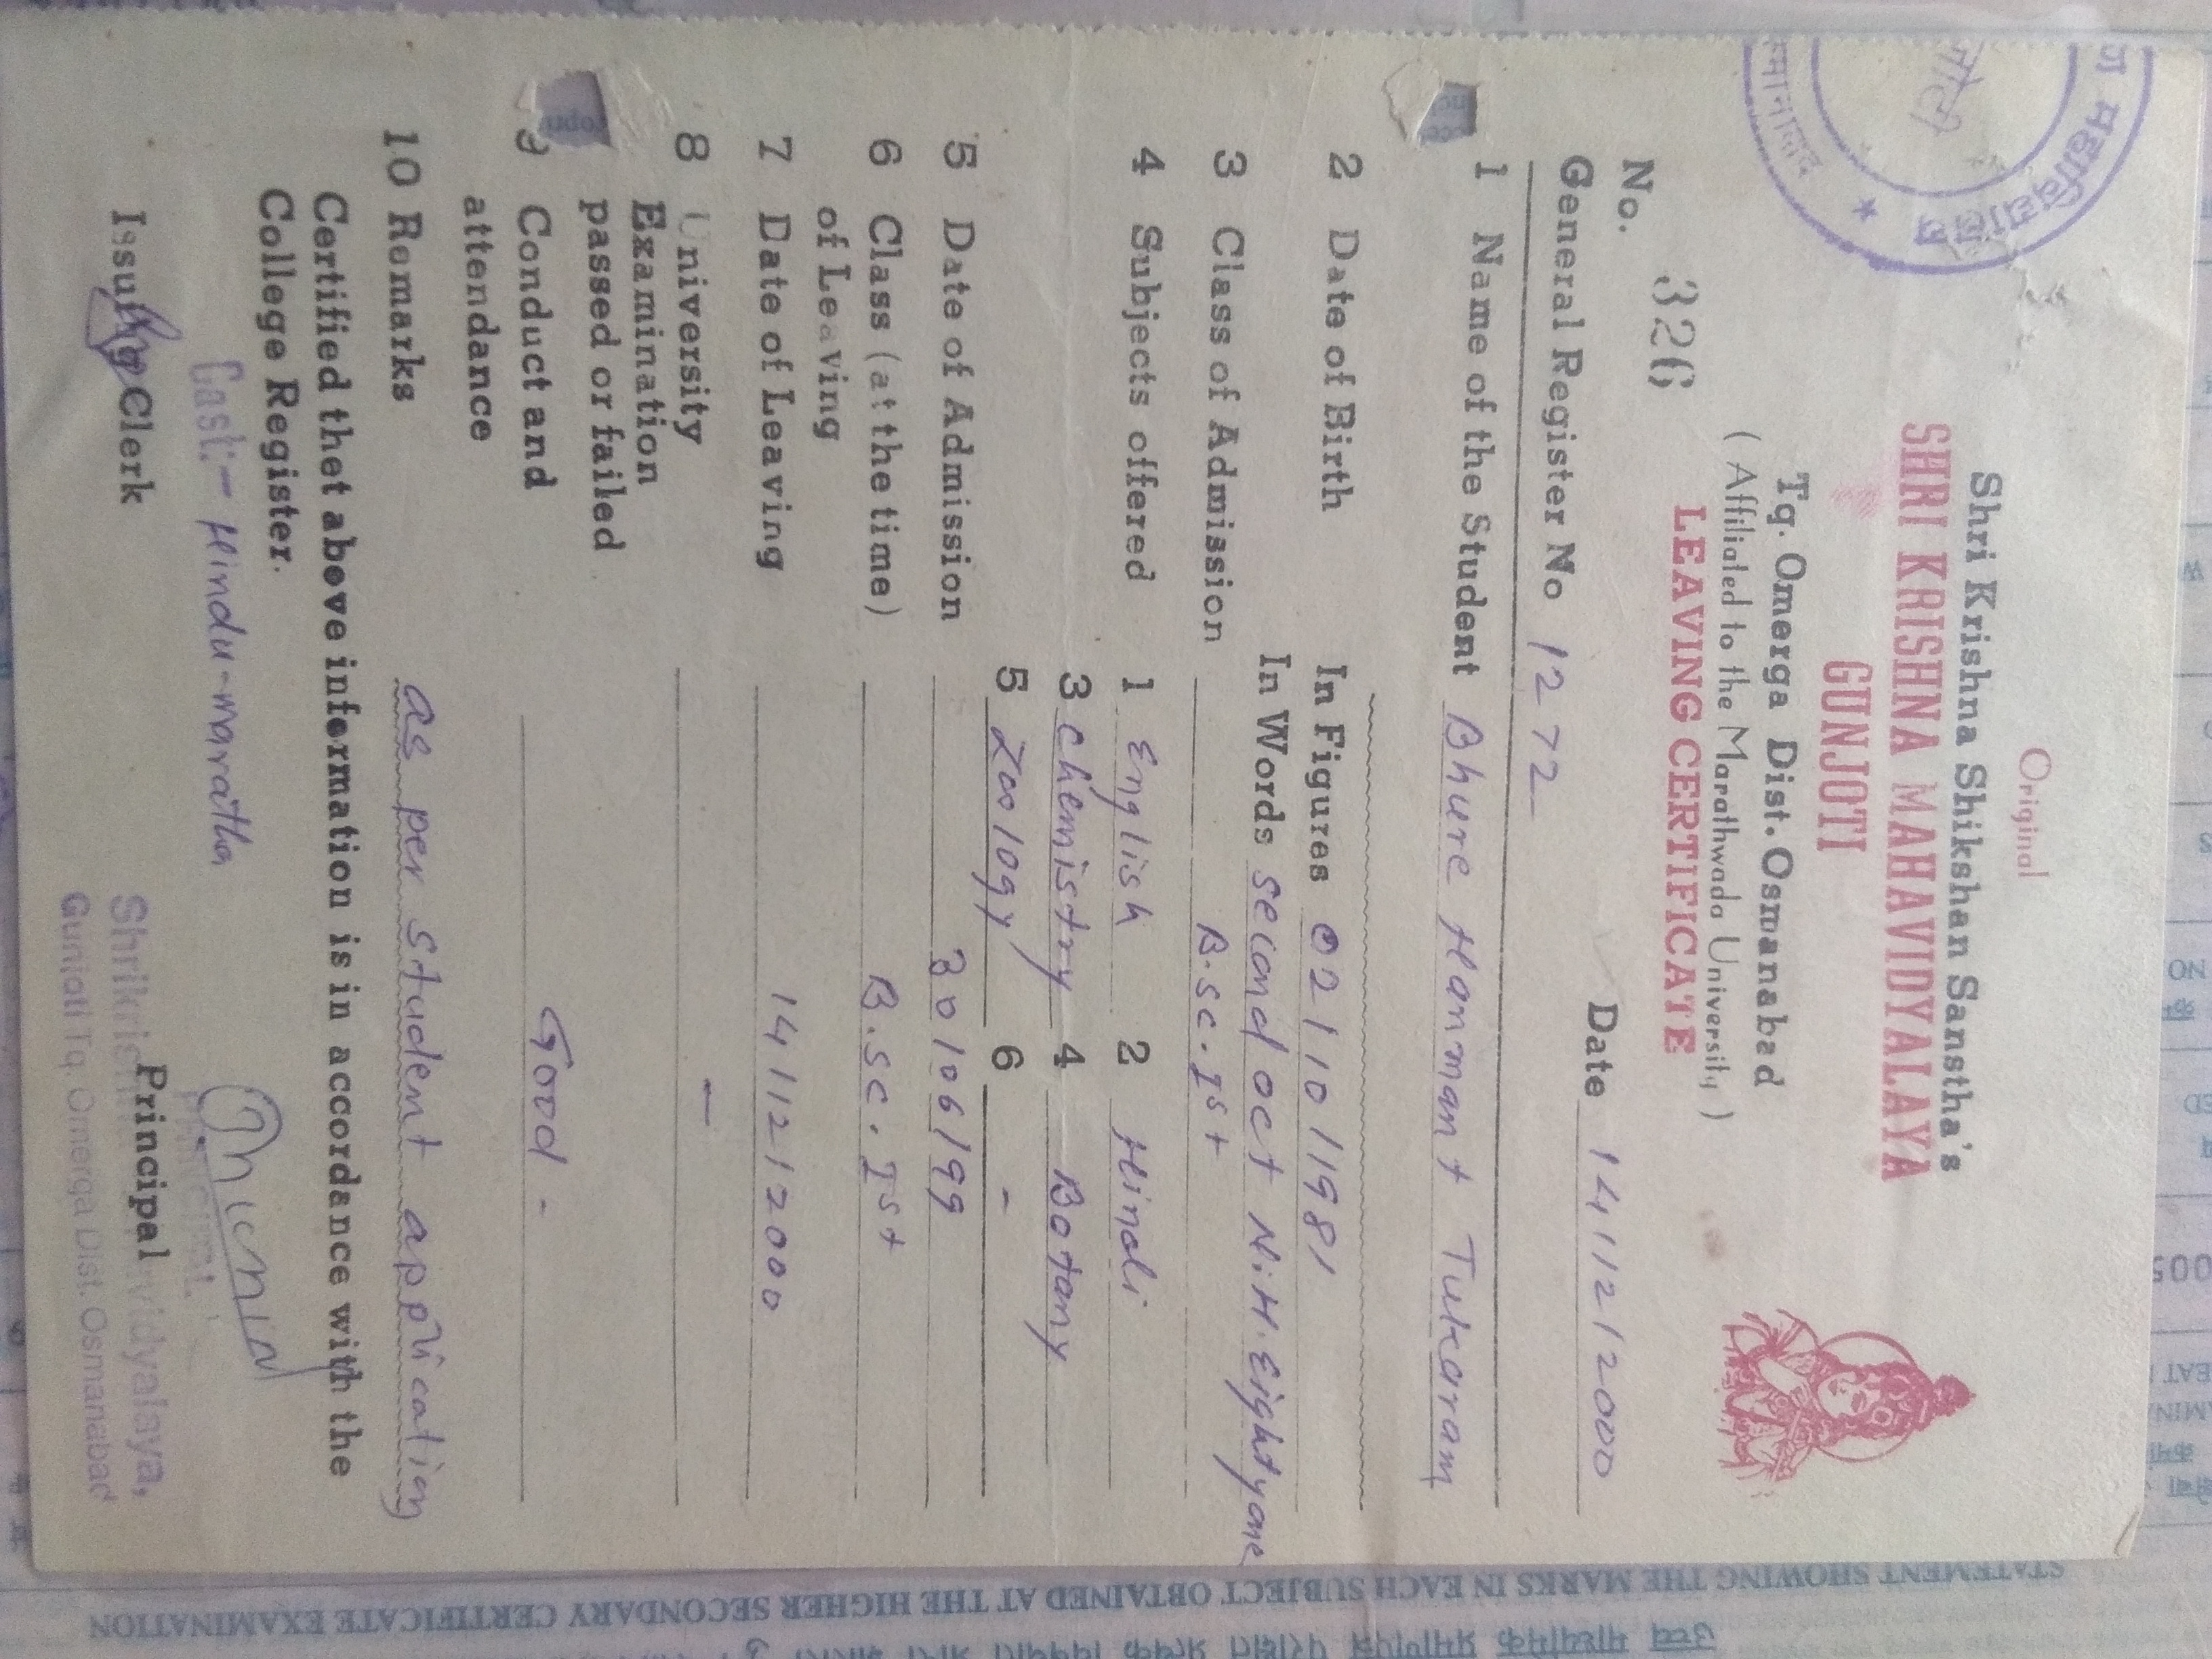 Original
Shri Krishna Shikshan Sanstha's
SHRI KRISHNA MAHAVIDYALAYA
GUNJOTI
Tq. Omerga Dist. Osmanabad
( Affiliated to the Marathwada University )
LEAVING CERTIFICATE
No. 326
Date 14/12/2000
General Register No 1272
1 Name of the Student Bhure Hanmant Tukaram
2 Date of Birth In Figures 02/10/1981
In Words Second oct N.H. Eightyone
3 Class of Admission B.Sc. Ist
4 Subjects offered 1 English 2 Hindi
3 Chemistry 4 Botany
5 Zoology 6 -
5 Date of Admission 30/06/99
6 Class (at the time) B.Sc. Ist
of Leaving
7 Date of Leaving 14/12/2000
8 University
Examination —
passed or failed
9 Conduct and Good -
attendance
10 Remarks as per student application
Certified thet above information is in accordance with the
College Register.
Cast:- Hindu-maratha
Issuing Clerk Principal
Gunjoti Tq. Omerga Dist. Osmanabad
STATEMENT SHOWING THE MARKS IN EACH SUBJECT OBTAINED AT THE HIGHER SECONDARY CERTIFICATE EXAMINATION